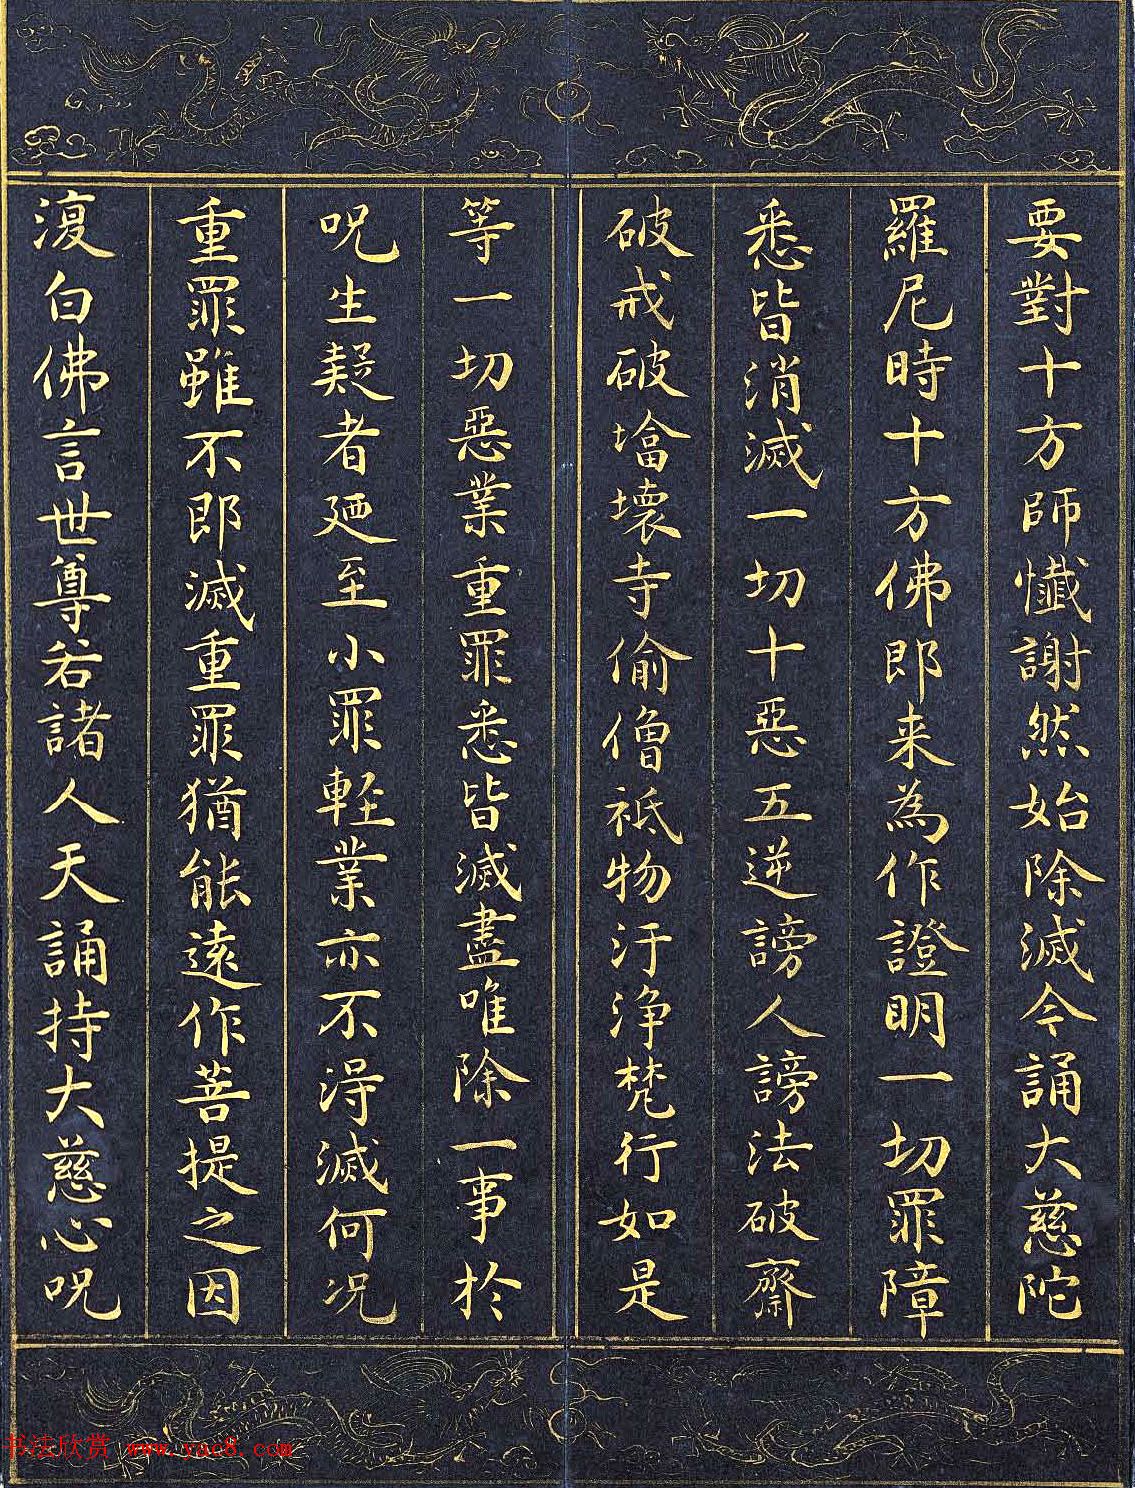 要對十方師懺謝然始除滅今誦大慈陀
羅尼時十方佛即来為作證明一切罪障
悉皆消滅一切十惡五逆謗人謗法破齋
破戒破墖壞寺偷僧祇物汙淨梵行如是
等一切惡業重罪悉皆滅盡唯除一事於
呪生疑者廼至小罪軽業亦不得滅何况
重罪雖不即滅重罪猶能遠作菩提之因
復白佛言世尊若諸人天誦持大慈心呪
书法欣赏 www.yac8.com